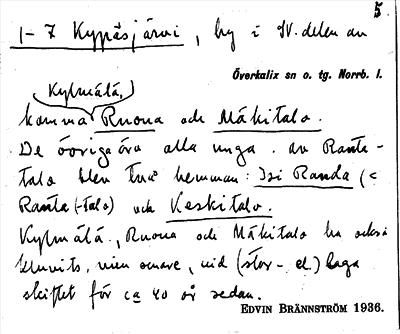 5.
1-7 Kypäsjärvi, by i SV. delen av
Överkalix sn o. tg. Norrb. l.
Kylmälä,
komma Ruona och Mäkitalo.
De övriga äro alla unga. av Ranta-
talo blev två hemman: Isi Randa (<
Ranta(-talo) och Keskitalo.
Kylmälä, Ruona och Mäkitalo ha också
kluvits, men senare, vid (stor- el.) laga
skiftet för ca 40 år sedan.
EDVIN BRÄNNSTRÖM 1936.